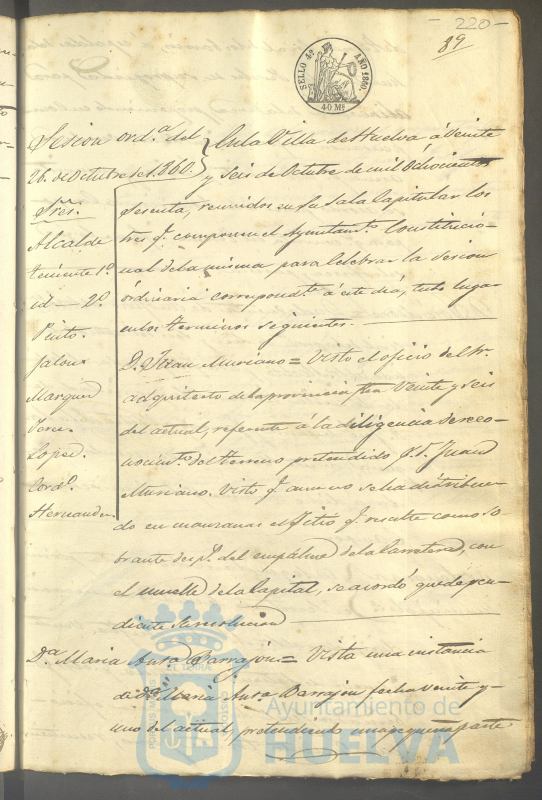 - 220 -
89
SELLO 4º AÑO 1860.
40 Ms
Sesion ord.ª del
26. de Octubre de 1.860.
Sres.
Alcalde
teniente 1º
id — 2º
Pinto.
Jalon
Marquez
Lopez.
Cord.º
Hernandez
En la Villa de Huelva á Veinte
y Seis de Octubre de mil Ochocientos
Sesenta, reunidos en su Sala Capitular los
Sres q. componen el Ayuntam.to Constitucio-
nal de la misma para celebrar la Sesion
órdinaria correspond.te á este dia, tubo lugar
en los terminos siguientes.
D. Juan Muriano = Visto el oficio del Sr.
arquitecto de la provincia fha Veinte y seis
del actual, referente á la diligencia de reco-
nocim.to del terreno pretendido p.r D. Juan
Muriano. Visto q. aun no se ha distribui-
do en manzanas el Sitio q. resulte como so-
brante despˢ. del empalme de la Carretera, con
el muelle de la Capital, se acordó quede pen-
diente su resolucion
D.ª Maria Barrajon = Vista una instancia
de D.ª Maria Barrajon fecha veinte y
uno del actual, pretendiendo una pequeña parte
Ayuntamiento de
HUELVA